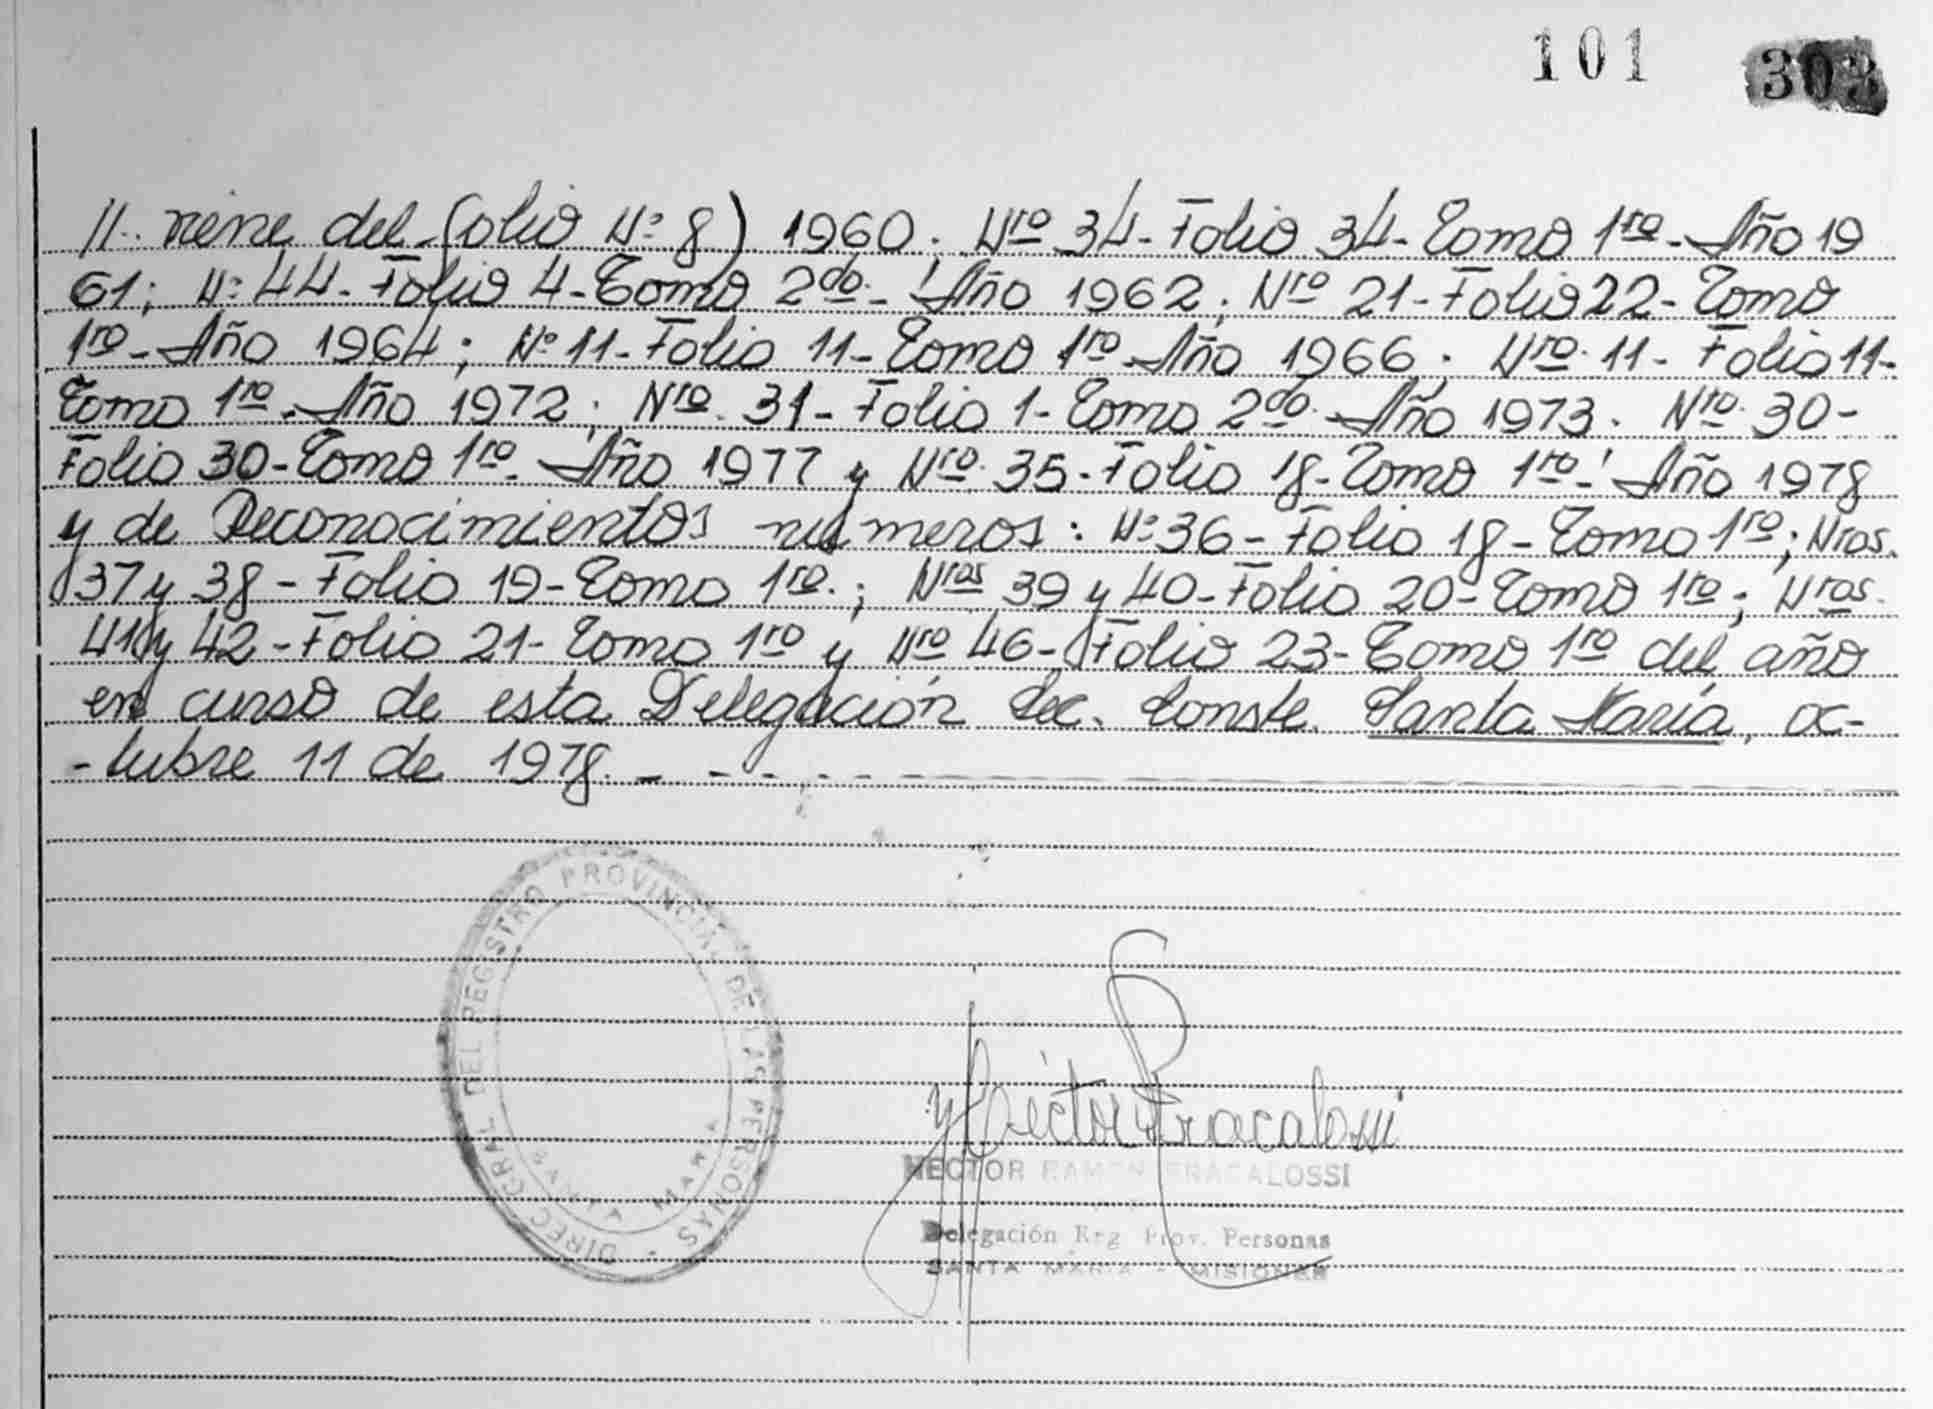 101 303
//. viene del folio Nº 8) 1960; Nro 34- Folio 34- Tomo 1ro- Año 19
61; Nº 44- Folio 4- Tomo 2do.- Año 1962; Nro 21- Folio 22- Tomo
1ro- Año 1964; Nº 11- Folio 11- Tomo 1ro- Año 1966; Nro. 11- Folio 11-
Tomo 1ro- Año 1972; Nro. 31- Folio 1- Tomo 2do. Año 1973. Nro. 30-
Folio 30- Tomo 1ro- Año 1977 y Nro. 35- Folio 18- Tomo 1ro- Año 1978
y de Reconocimientos números: Nº 36- Folio 18- Tomo 1ro; Nros.
37 y 38- Folio 19- Tomo 1ro.; Nros 39 y 40- Folio 20- Tomo 1ro; Nros.
41 y 42- Folio 21- Tomo 1ro y Nro 46- Folio 23- Tomo 1ro del año
en curso de esta Delegación Sec. Conste. Santa María, oc-
-tubre 11 de 1978. - - - -
DIREC. GRAL. DEL REGISTRO PROVINCIAL DE LAS PERSONAS
Héctor Fracalossi
HECTOR RAMON FRACALOSSI
Delegación Reg. Prov. Personas
SANTA MARIA - MISIONES